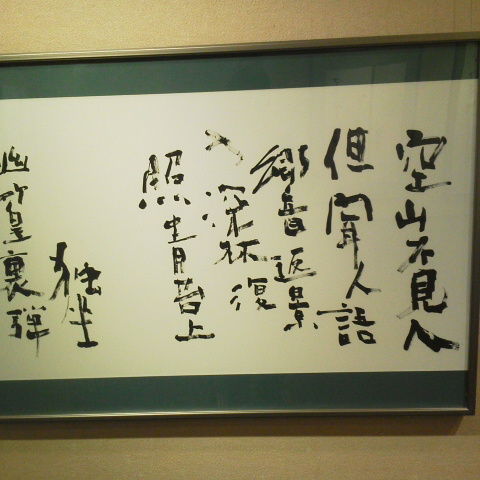 空山不見人
但聞人語
響返景
入深林復
照青苔上
独坐
幽篁裏弾